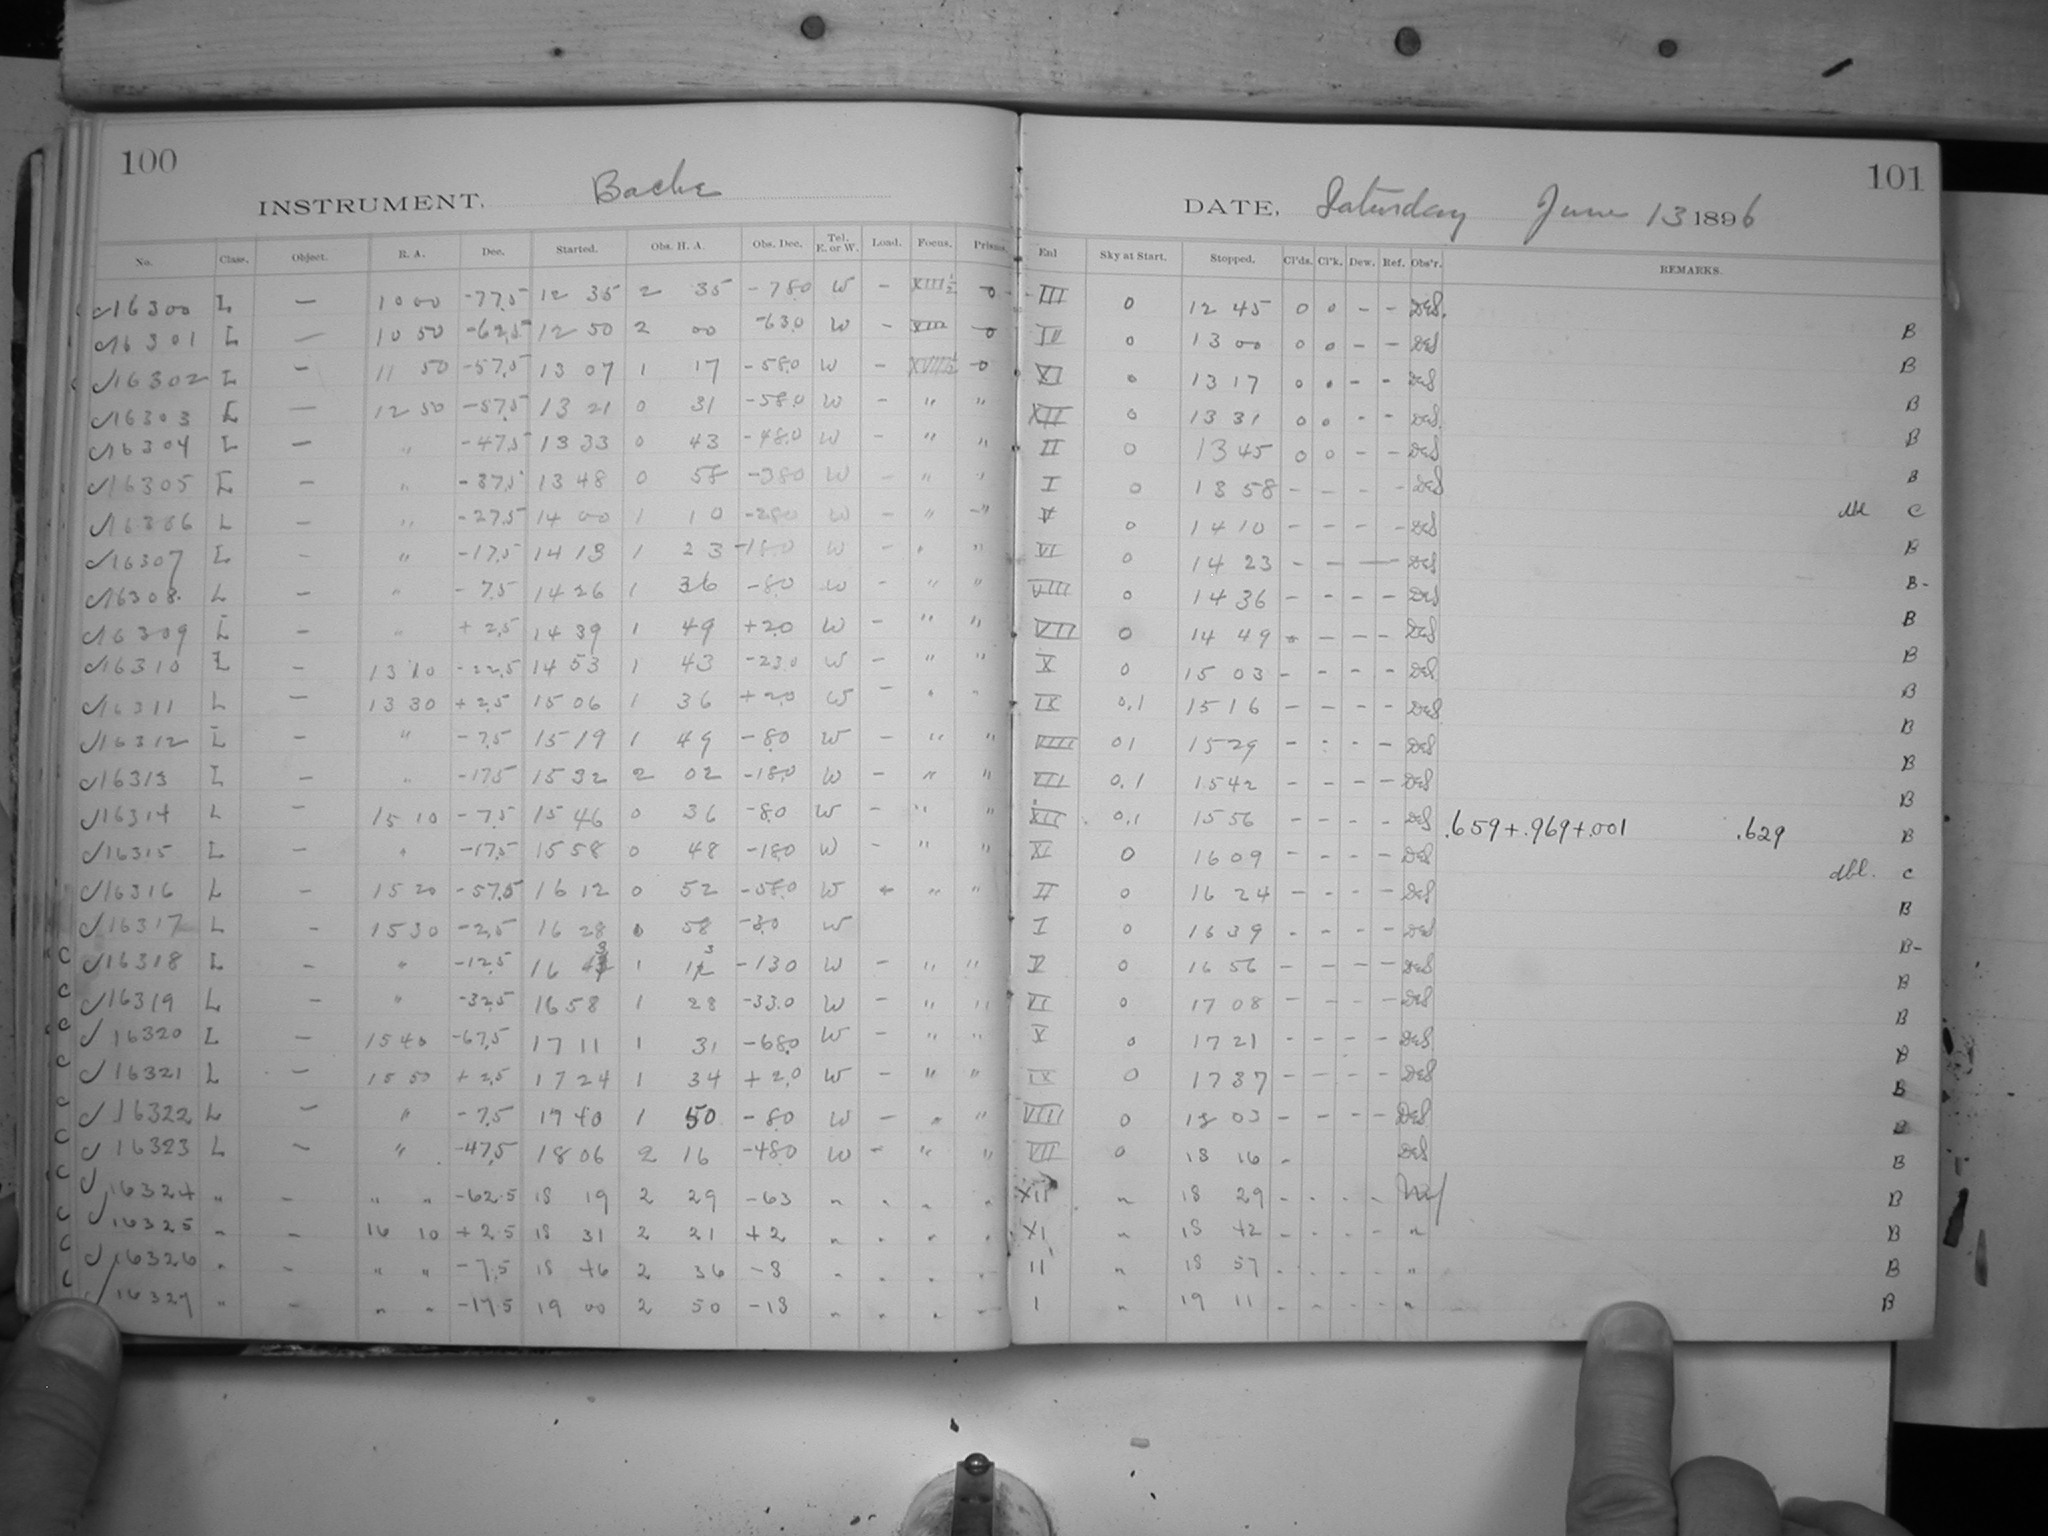 100
INSTRUMENT, Bache
No. Class. Object. R. A. Dec. Started. Obs. H. A. Obs. Dec. Tel. E. or W. Load. Focus. Prisms.
16300 L — 10 00 -77.5 12 35 2 35 -78.0 W - XIII½ 0
16301 L — 10 50 -62.5 12 50 2 00 -63.0 W - 0
16302 L — 11 50 -57.5 13 07 1 17 -58.0 W - 0
16303 L — 12 50 -57.5 13 21 0 31 -58.0 W - " "
16304 L — " -47.5 13 33 0 43 -48.0 W - " "
16305 L — " -37.5 13 48 0 58 -38.0 W - " "
16306 L — " -27.5 14 00 1 10 -28.0 W - " "
16307 L — " -17.5 14 13 1 23 -18.0 W - " "
16308 L — " -7.5 14 26 1 36 -8.0 W - " "
16309 L — " +2.5 14 39 1 49 +2.0 W - " "
16310 L — 13 10 -22.5 14 53 1 43 -23.0 W - " "
16311 L — 13 30 +2.5 15 06 1 36 +2.0 W - " "
16312 L — " -7.5 15 19 1 49 -8.0 W - " "
16313 L — " -17.5 15 32 2 02 -18.0 W - " "
16314 L — 15 10 -7.5 15 46 0 36 -8.0 W - " "
16315 L — " -17.5 15 58 0 48 -18.0 W - " "
16316 L — 15 20 -57.5 16 12 0 52 -58.0 W - " "
16317 L — 15 30 -2.5 16 28 0 58 -3.0 W
16318 L — " -12.5 16 43 1 13 -13.0 W - " "
16319 L — " -32.5 16 58 1 28 -33.0 W - " "
16320 L — 15 40 -67.5 17 11 1 31 -68.0 W - " "
16321 L — 15 50 +2.5 17 24 1 34 +2.0 W - " "
16322 L — " -7.5 17 40 1 50 -8.0 W - " "
16323 L — " -47.5 18 06 2 16 -48.0 W - " "
16324 " — " " -62.5 18 19 2 29 -63 " " " "
16325 " — 16 10 +2.5 18 31 2 21 +2 " " " "
16326 " — " " -7.5 18 46 2 36 -8 " " " "
16327 " — " " -17.5 19 00 2 50 -18 " " " "
101
DATE, Saturday June 13 1896
End Sky at Start. Stopped. Cl'ds. Cl'k. Dew. Ref. Obs'r. REMARKS.
III 0 12 45 0 0 - - DES.
IV 0 13 00 0 0 - - DES B
XI 0 13 17 0 0 - - DES B
XII 0 13 31 0 0 - - DES. B
II 0 13 45 0 0 - - DES B
I 0 13 58 - - - - DES B
V 0 14 10 - - - - DES dbl C
VI 0 14 23 - - - DES B
VIII 0 14 36 - - - - DES B-
VII 0 14 49 - - - - DES B
X 0 15 03 - - - - DES B
IX 0.1 15 16 - - - - DES B
VIII 0.1 15 29 - - - - DES B
VII 0.1 15 42 - - - - DES B
XII 0.1 15 56 - - - - DES .659+.969+.001 .629 B
XI 0 16 09 - - - - DES B
II 0 16 24 - - - - DES dbl. C
I 0 16 39 - - - - DES B
V 0 16 56 - - - - DES B-
VI 0 17 08 - - - - DES B
V 0 17 21 - - - - DES. B
IX 0 17 37 - - - - DES B
VIII 0 18 03 - - - - DES B
VII 0 18 16 - DES B
XII " 18 29 - - - - B
XI " 18 42 - - - - " B
II " 18 57 - - - - " B
I " 19 11 - - - - " B